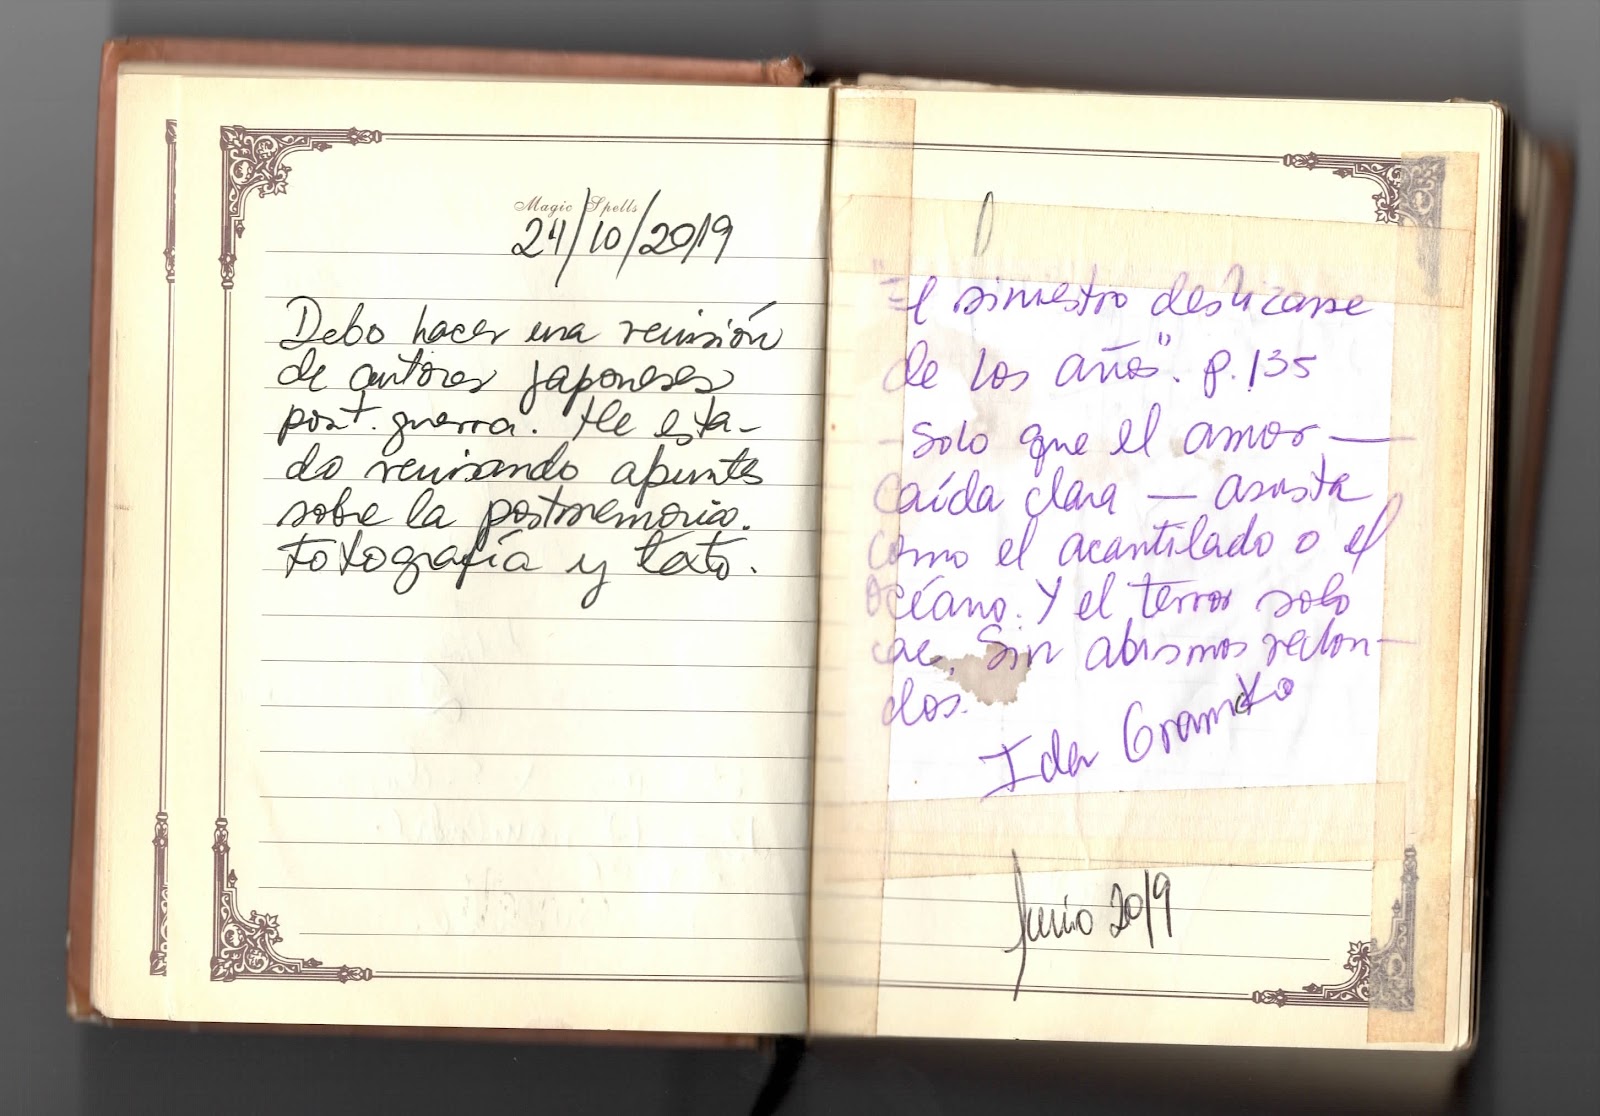 Magic Spells
24/10/2019
Debo hacer una revisión
de autores japoneses
post. guerra. He esta-
do revisando apuntes
sobre la postmemoria.
Fotografía y tato.
"El siniestro deslizarse
de los años". p. 135
- Solo que el amor —
caída clara — asusta
como el acantilado o el
océano. Y el terror solo
cae. Sin abismos redon-
dos.
Ida Gramcko
Junio 2019